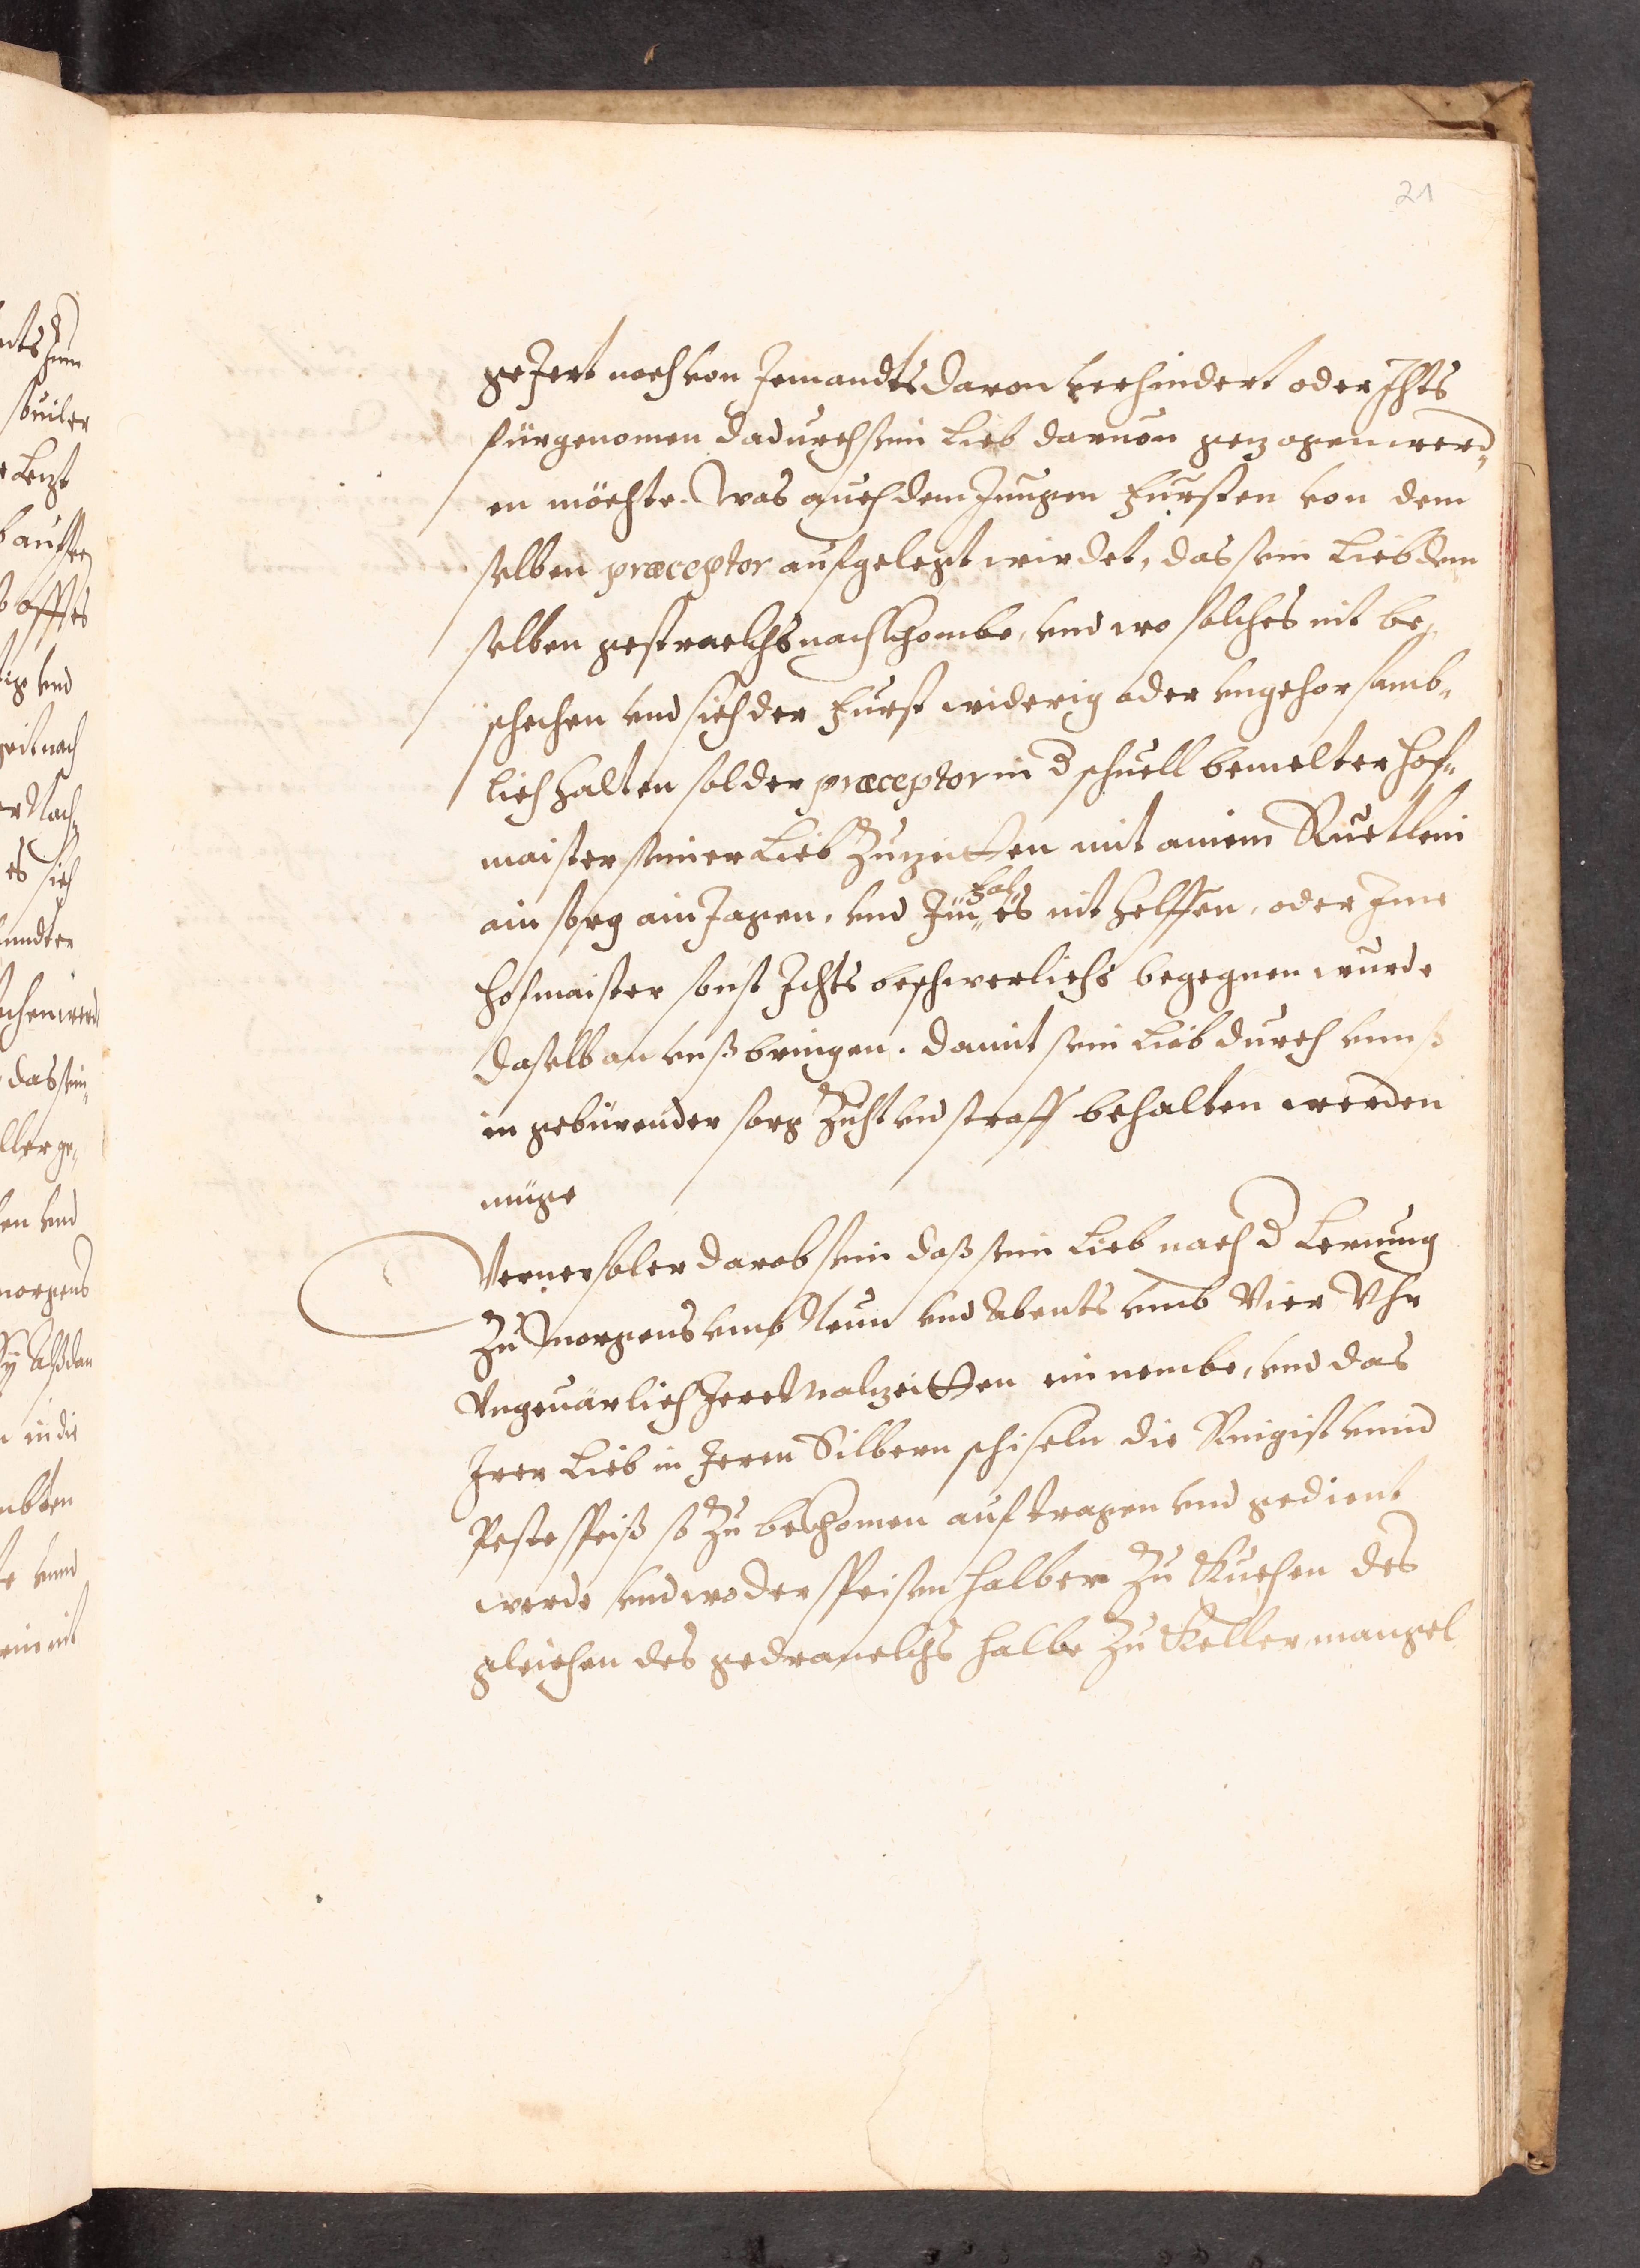 21
geJert noch von Jemandts daron verhindert oder Ichts
fürgenomen dadurch sein Lieb daruon gezogen werd„
en möchte. Was auch dem Jungen Fürsten von dem
selben præceptor aufgelegt wirdet, das sein Lieb dem
selben gestrackhs nachkhombe, vnd wo solches nit be„
schechen vnd sich der Fürst widerig oder vngehorsamb„
lich halten sol der præceptor in d schuell bemelter hof„
maister seiner Lieb Zuzeitten mit ainem Ruetlein
ain sorg ain Jagen, vnd Jm „es nit helffen, oder Jme
hofmaister sonst Ichts beschwerlichs begegnen wurde
daselb an vnß bringen. damit sein Lieb durch vnnß
in gebürender sorg Zucht vnd straff behalten werden
müge
Verner sol er darob sein daß sein Lieb nach d Lernung
Zu Morgens vmb Neun vnd Abents vmb Vier Vhr
Vngeuärlich Jere Malzeitten ein nembe, vnd das
Jrer Lieb in Jeren Silbern schiseln die Ringist vnnd
Peste speiß so Zu bekhomen auftragen vnd gedient
werde vnd wo der speisen halber Zu Kuchen des
gleichen des gedranckhs halbe Zu Keller mangel